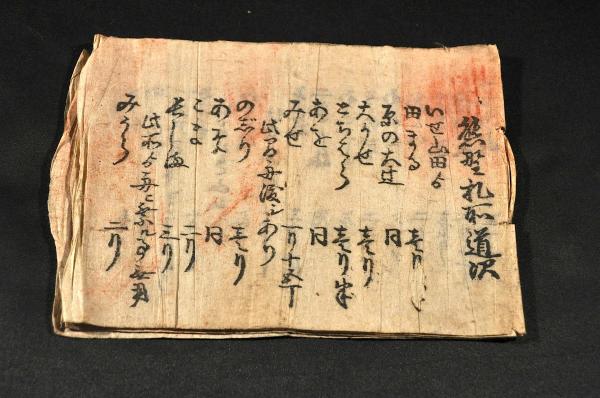 熊野札所道次
いせ山田ゟ
田まる 壱り
原の大辻 同
大うせ 壱り
とちはら 壱り半
あそ 同
みせ 一り十五丁
此間舟渡シあり
のじり 壱り
あふそ 同
こま 二り
長しま 三り
此所ゟ舟に乗ル事無用
みうら 二り